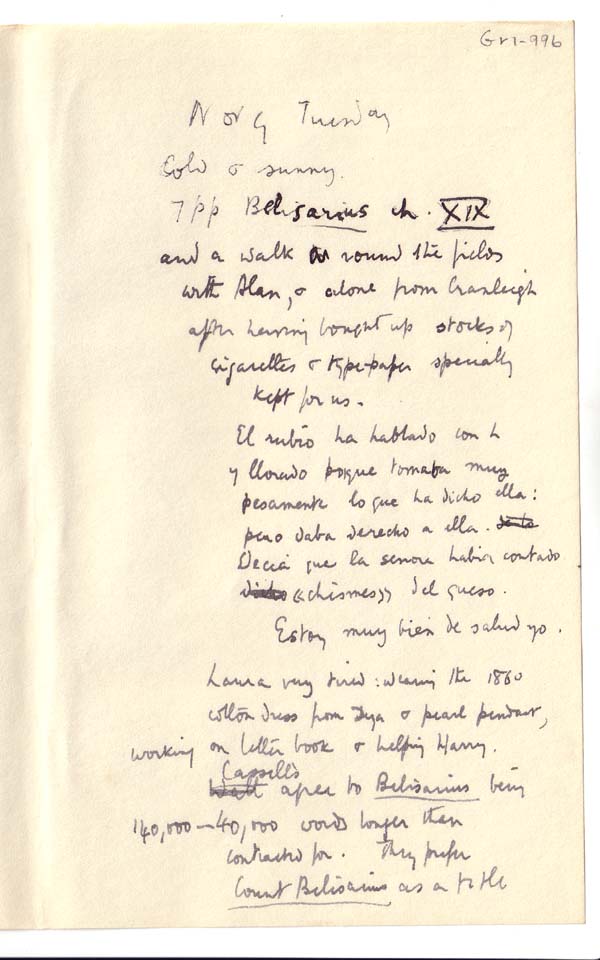 Gr1-996
Nov 9 Tuesday
Cold & sunny.
7 pp Belisarius ch. XIX
and a walk round the fields
with Alan, & alone from Cranleigh
after having bought up stocks of
cigarettes & type-paper specially
kept for us.
El rubio ha hablado con h
y llorado porque tomaba muy
pesamente lo que ha dicho ella:
pero daba derecho a ella.
Decia que la senora habia contado
dicho «chismes» del queso.
Estoy muy bien de salud yo.
Laura very tired: wearing the 1860
cotton dress from Deya & pearl pendant,
working on letter book & helping Harry.
Cassells
agree to Belisarius being
140,000 — 40,000 words longer than
contracted for. They prefer
Count Belisarius as a title